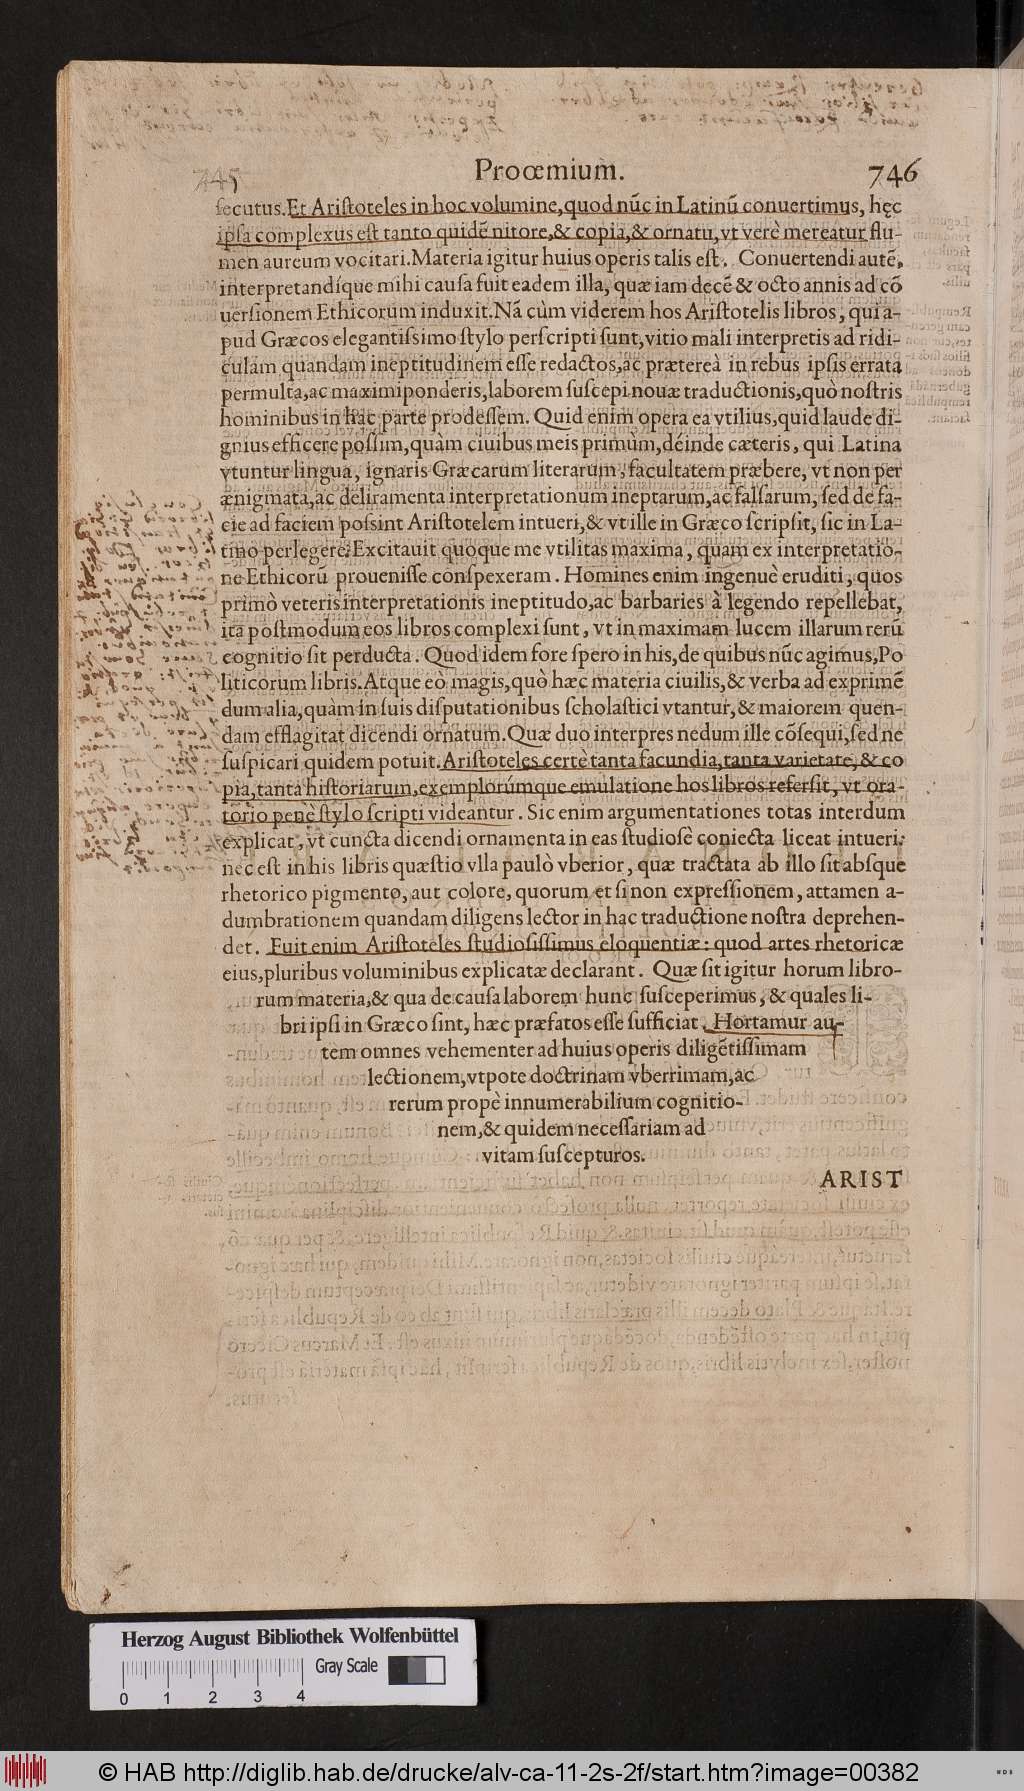 745
Proœmium.
746
ſecutus. Et Ariſtoteles in hoc volumine, quod nũc in Latinũ conuertimus, hęc
ipſa complexus eſt tanto quidẽ nitore, & copia, & ornatu, vt verè mereatur flu-
men aureum vocitari. Materia igitur huius operis talis eſt. Conuertendi autẽ,
interpretandíque mihi cauſa fuit eadem illa, quæ iam decẽ & octo annis ad cõ
uerſionem Ethicorum induxit. Nã cùm viderem hos Ariſtotelis libros, qui a-
pud Græcos elegantiſsimo ſtylo perſcripti ſunt, vitio mali interpretis ad ridi-
culam quandam ineptitudinem eſſe redactos, ac præterea in rebus ipſis errata
permulta, ac maximi ponderis, laborem ſuſcepi nouæ traductionis, quò noſtris
hominibus in hac parte prodeſſem. Quid enim opera ea vtilius, quid laude di-
gnius efficere poſſim, quàm ciuibus meis primùm, déinde cæteris, qui Latina
vtuntur lingua, ignaris Græcarum literarum, facultatem præbere, vt non per
ænigmata, ac deliramenta interpretationum ineptarum, ac falſarum, ſed de fa-
cie ad faciem poſsint Ariſtotelem intueri, & vt ille in Græco ſcripſit, ſic in La-
tino perlegere? Excitauit quoque me vtilitas maxima, quam ex interpretatio-
ne Ethicorũ proueniſſe conſpexeram. Homines enim ingenuè eruditi, quos
primò veteris interpretationis ineptitudo, ac barbaries à legendo repellebat,
ita poſtmodum eos libros complexi ſunt, vt in maximam lucem illarum rerũ
cognitio ſit perducta. Quod idem fore ſpero in his, de quibus nũc agimus, Po
liticorum libris. Atque eò magis, quò hæc materia ciuilis, & verba ad exprimẽ
dum alia, quàm in ſuis diſputationibus ſcholaſtici vtantur, & maiorem quen-
dam efflagitat dicendi ornatum. Quæ duo interpres nedum ille cõſequi, ſed ne
ſuſpicari quidem potuit. Ariſtoteles certè tanta facundia, tanta varietate, & co
pia, tanta hiſtoriarum, exemplorúmque emulatione hos libros referſit, vt ora-
torio penè ſtylo ſcripti videantur. Sic enim argumentationes totas interdum
explicat, vt cuncta dicendi ornamenta in eas ſtudioſè coniecta liceat intueri:
nec eſt in his libris quæſtio vlla paulò vberior, quæ tractata ab illo ſit abſque
rhetorico pigmento, aut colore, quorum et ſi non expreſſionem, attamen a-
dumbrationem quandam diligens lector in hac traductione noſtra deprehen-
det. Fuit enim Ariſtoteles ſtudioſiſſimus eloquentiæ: quod artes rhetoricæ
eius, pluribus voluminibus explicatæ declarant. Quæ ſit igitur horum libro-
rum materia, & qua de cauſa laborem hunc ſuſceperimus, & quales li-
bri ipſi in Græco ſint, hæc præfatos eſſe ſufficiat. Hortamur au-
tem omnes vehementer ad huius operis diligẽtiſſimam
lectionem, vtpote doctrinam vberrimam, ac
rerum propè innumerabilium cognitio-
nem, & quidem neceſſariam ad
vitam ſuſcepturos.
ARIST
Herzog August Bibliothek Wolfenbüttel
Gray Scale
0 1 2 3 4
© HAB http://diglib.hab.de/drucke/alv-ca-11-2s-2f/start.htm?image=00382